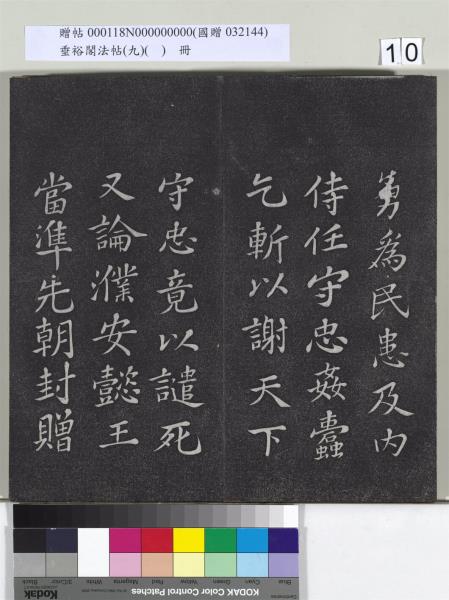 贈帖 000118N000000000(國贈 032144)
垂裕閣法帖(九)( ) 冊
10
勇為民患及内
侍任守忠姦蠹
乞斬以謝天下
守忠竟以譴死
又論濮安懿王
當準先朝封贈
Blue Cyan Green Yellow Red Magenta White 3/Color Black
KODAK Color Control Patches
Kodak